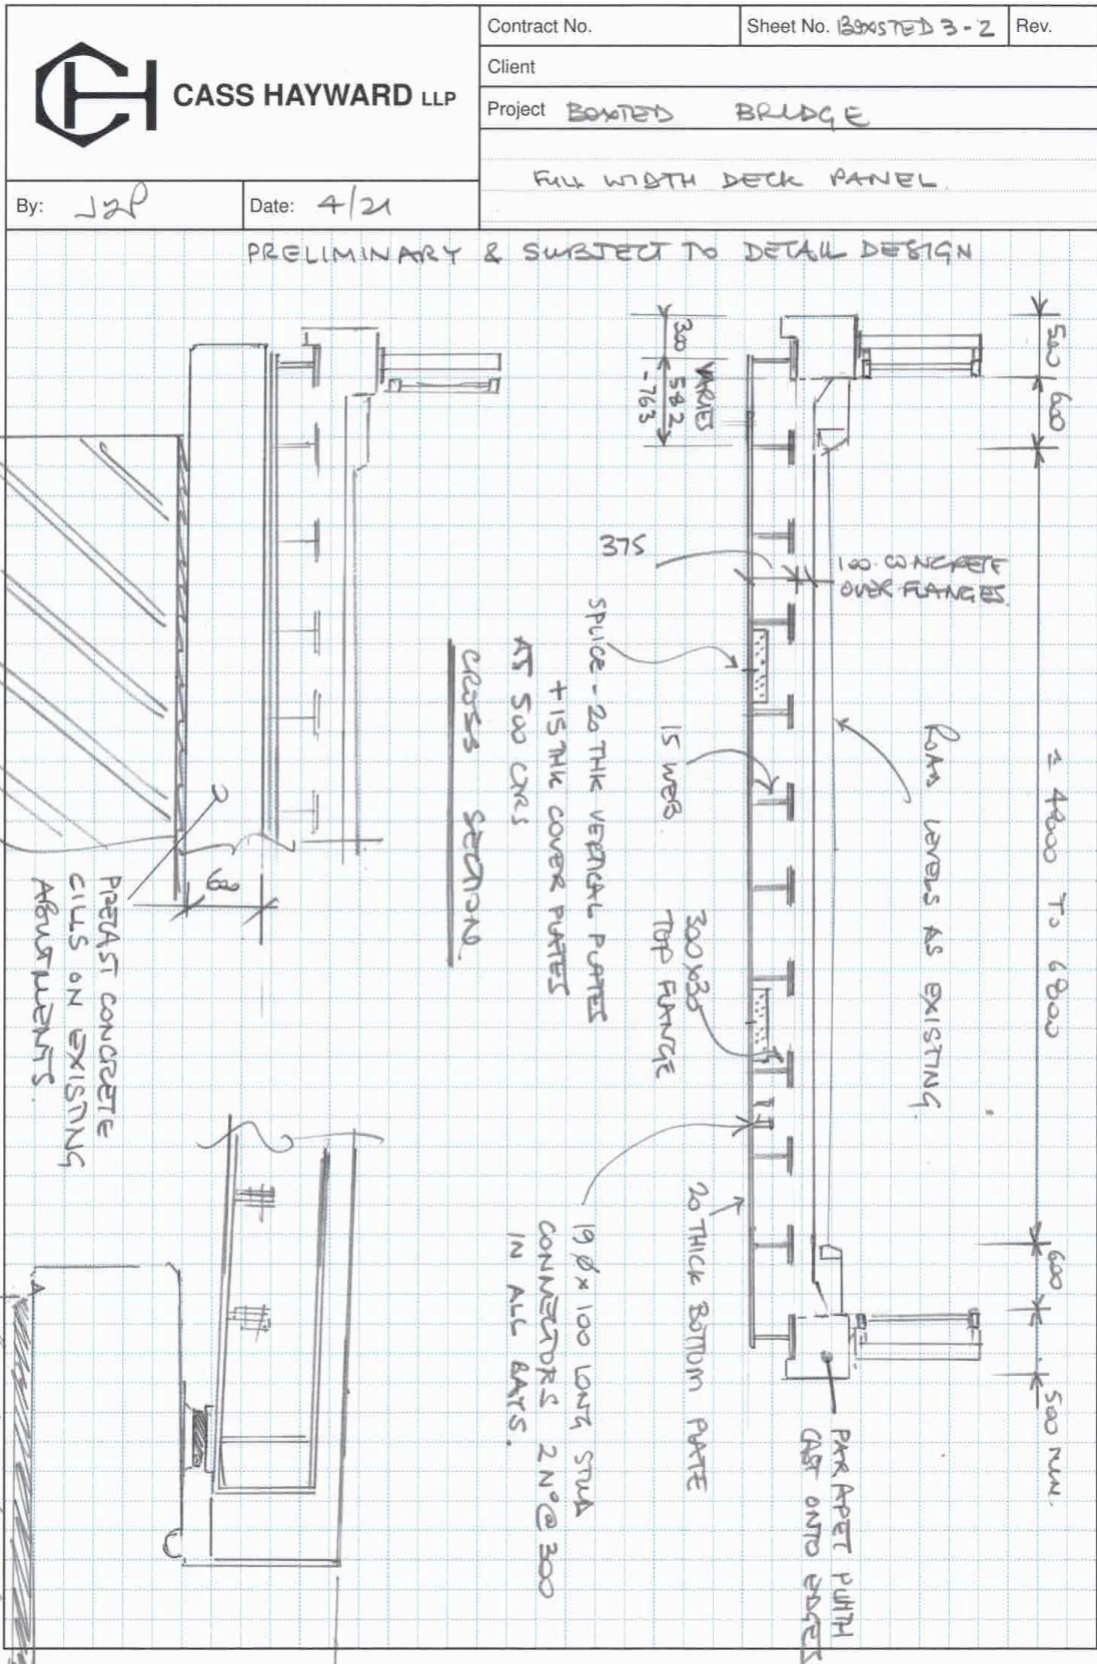 CASS HAYWARD LLP
Contract No.
Sheet No. BOXSTED 3-2
Rev.
Client
Project BOXSTED BRIDGE
FULL WIDTH DECK PANEL.
By: JZP
Date: 4/21
PRELIMINARY & SUBJECT TO DETAIL DESIGN
500
600
± 4800 TO 6800
600
500 MIN.
300
VARIES
582
-763
375
100 CONCRETE
OVER FLANGES.
ROAD LEVELS AS EXISTING.
PARAPET PLINTH
CAST ONTO EDGES
SPLICE - 20 THK VERTICAL PLATES
+15 THK COVER PLATES
AT 500 CRS
15 WEB
300x30
TOP FLANGE
20 THICK BOTTOM PLATE
19 Ø x 100 LONG STUD
CONNECTORS 2 Nº @ 300
IN ALL BAYS.
CROSS SECTION
PRECAST CONCRETE
CILLS ON EXISTING
ABUTMENTS.